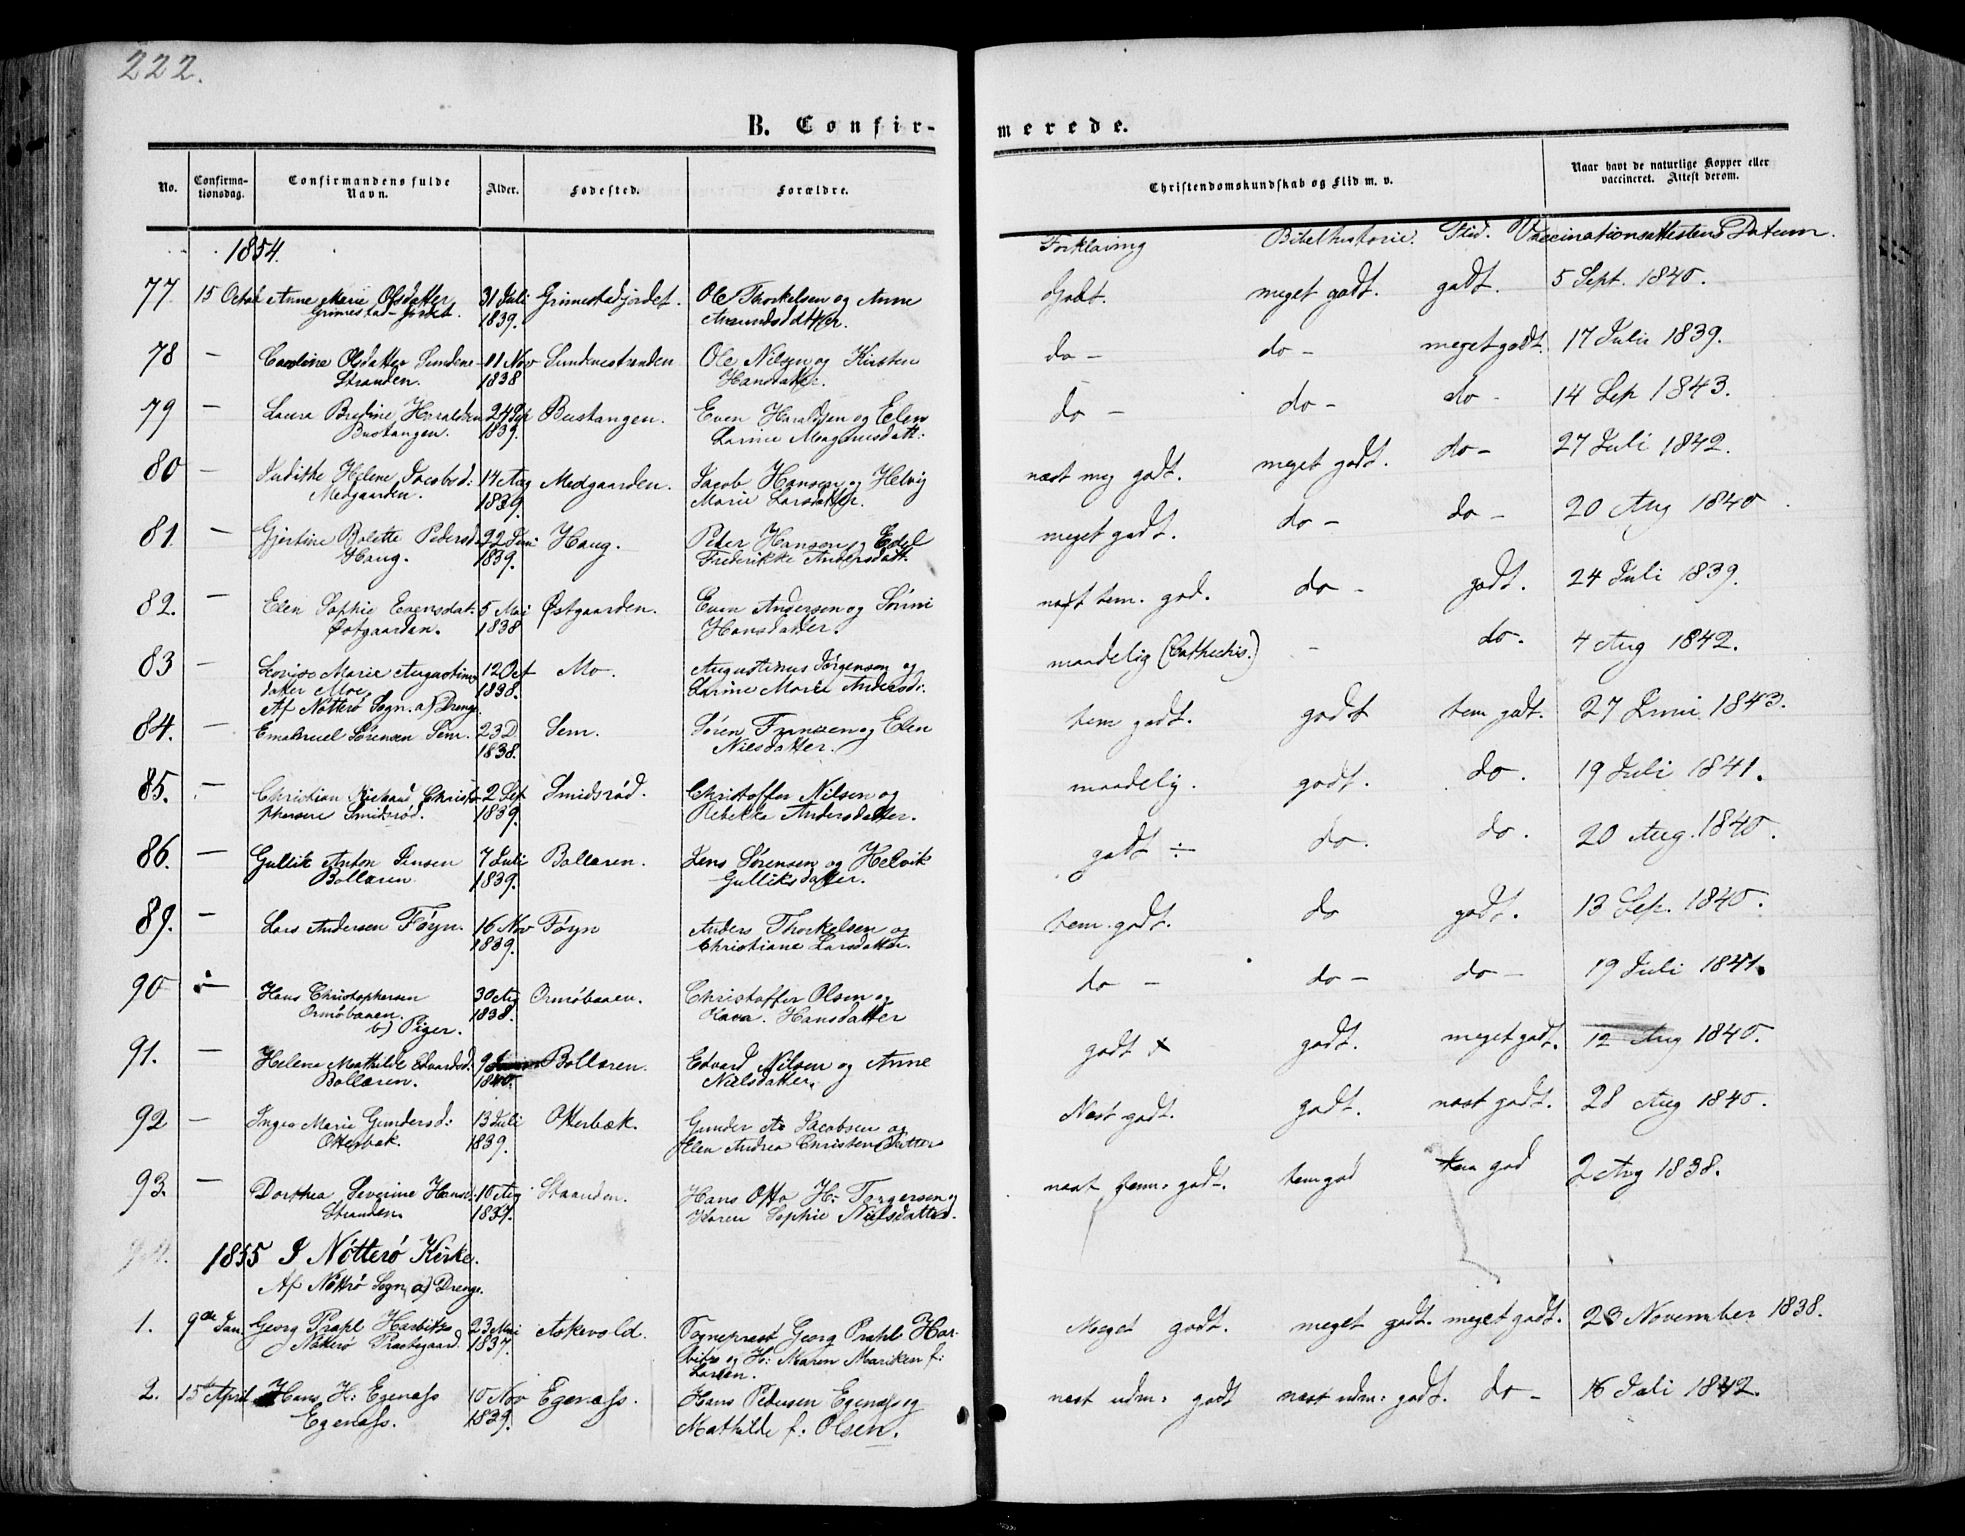 222.
B. Confir-
merede.
No. Confirma-tionsdag. Confirmandens fulde Navn. Alder. Fødested. Forældre. Christendomskundskab og Flid m. v. Naar havt de naturlige Kopper eller vaccineret. Attest derom.
1854. Forklaring Bibelhistorie. Flid. Vaccinationsattestens Datum.
77 15 Octob Anne Marie Olsdatter 31 Juli Grimestadjordet. Ole Thorkelsen og Anne Godt. meget godt. godt. 5 Sept. 1840.
Grimestad-Jordet. 1839. Amundsdatter.
78 — Caroline Olsdatter Sundene 11 Nov Sundenestranden Ole Nilsen og Kirsten do - do - meget godt. 17 Julii 1839.
Stranden. 1838 Hansdatter.
79 — Laura Bredine Haraldsen 24 Sep Bustangen. Even Haraldsen og Elen do - do - do - 14 Sep 1843.
Bustangen. 1839. Larine Magnusdatt:
80 — Judithe Helene Jacobsd: 14 Aug Medgaarden. Jacob Hansen og Helvig næst meg godt. meget godt. do - 27 Juli 1842.
Medgaarden. 1839. Marie Larsdatter.
81. — Gjertine Bolette Pedersd. 22 Juni Haug. Peder Hansen og Edel meget godt. do - do - 20 Aug 1840
Haug. 1839. Frederikke Andersdatt.
82. — Elen Sophie Evensdat. 5 Mai Østgaarden. Even Andersen og Sørine næst tem. god. do - godt. 24 Juli 1839.
Østgaarden. 1838 Hansdatter.
83 — Lovise Marie Augustinus 12 Oct Mo. Augustinus Jørgensen og maadelig (Cathechis.) - do. 4 Aug 1842.
datter Moe. 1838. Larine Marie Andersd:
Af Nøtterø Sogn. a) Drenge.
84. — Emanuel Sørensen Sem. 23 D Sem. Søren Franzen og Elen tem godt. godt tem godt. 27 Juni 1843.
1838. Nilsdatter.
85. — Christian Richard Christo- 2 Sep Smidsrød. Christoffer Nilsen og maadelig. godt. do. 19 Juli 1841.
phersen Smidsrød. 1839. Rebekka Andersdatter.
86. — Gullik Anton Jensen 7 Juli Bollæren. Jens Sørensen og Helvik godt ÷ do. do. 20 Aug. 1840.
Bollæren 1839. Gulliksdatter.
89. — Lars Andersen Føyn. 16 Nov Føyn Anders Thorkelsen og tem. godt. do godt. 13 Sep. 1840.
1839. Christiane Larsdatter.
90 — Hans Christophersen 30 Aug Ormøbaaen. Christoffer Olsen og do - do - do - 19 Juli 1841.
Ormøbaaen. 1838. Hansdatter
b) Piger.
91. — Helena Mathilde Edvardsd: 9 Bollæren. Edvard Nilsen og Anne godt x godt. meget godt. 12 Aug 1840.
Bollæren. 1840. Nielsdatter.
92 — Inger Marie Gundersd: 13 Juli Otterbæk. Gunder As Jacobsen og Næst godt. godt. næst godt. 28 Aug 1840.
Otterbæk. 1839. Elen Andrea Christensdatter
93. — Dorthea Severine Hansd: 10 Aug Stranden. Hans Otto H: Torgersen og næst tem: godt. tem god tem god 2 Aug 1838.
Stranden. 1837. Karen Sophie Nielsdatter.
94. 1855 I Nøtterø Kirke.
Af Nøttrø Sogn, a) Drenge.
1. 9de Jan. Georg Prahl Harbitz 23 Mai Askevold. Sogneprest Georg Prahl Har- Meget godt. meget godt. meget godt. 23 November 1838.
Nøtterø Præstegaard. 1837. bitz og H: Maren Mariken f:
Larsen.
2. 15de April Hans H: Egenæss 10 Nov Egenæss. Hans Pedersen Egenæss og næst udm: godt næst udm: godt. do - 16 Juli 1842.
Egenæss. 1839. Mathilde f: Olsen.